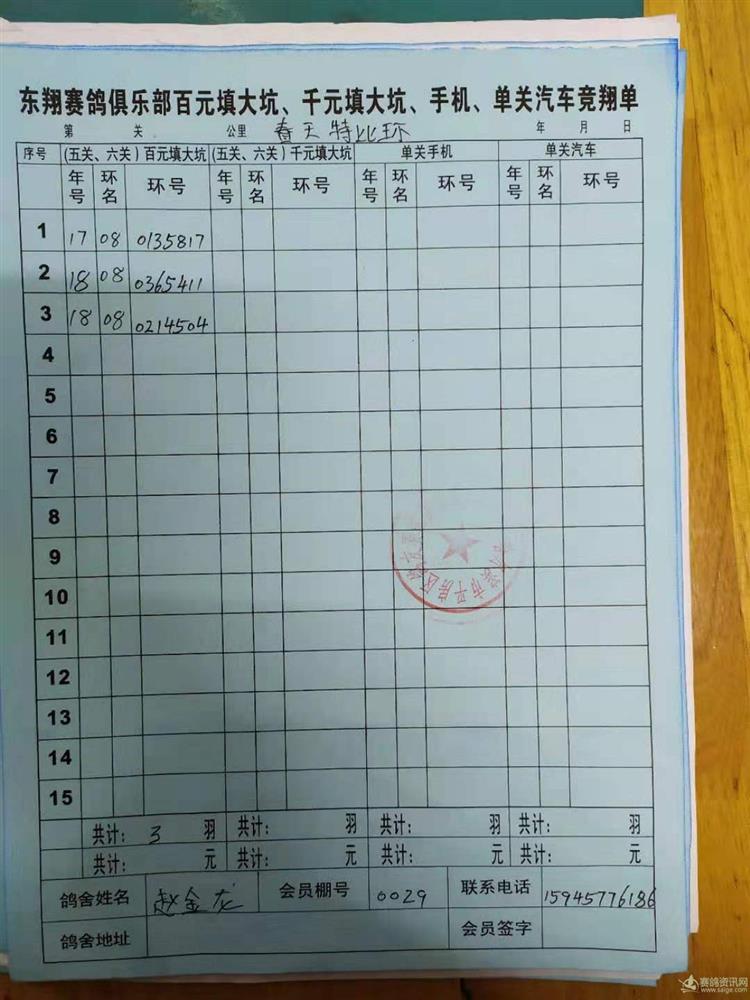 东翔赛鸽俱乐部百元填大坑、千元填大坑、手机、单关汽车竞翔单
第 关 公里 春天特比环 年 月 日
序号 (五关、六关)百元填大坑 (五关、六关)千元填大坑 单关手机 单关汽车
年号 环名 环号 年号 环名 环号 年号 环名 环号 年号 环名 环号
1 17 08 0135817
2 18 08 0365411
3 18 08 0214504
4
5
6
7
8
9
10
11
12
13
14
15
共计: 3 羽 共计: 羽 共计: 羽 共计: 羽
共计: 元 共计: 元 共计: 元 共计: 元
鸽舍姓名 赵金龙 会员棚号 0029 联系电话 15945776186
鸽舍地址 会员签字
赛鸽资讯网
www.saige.com